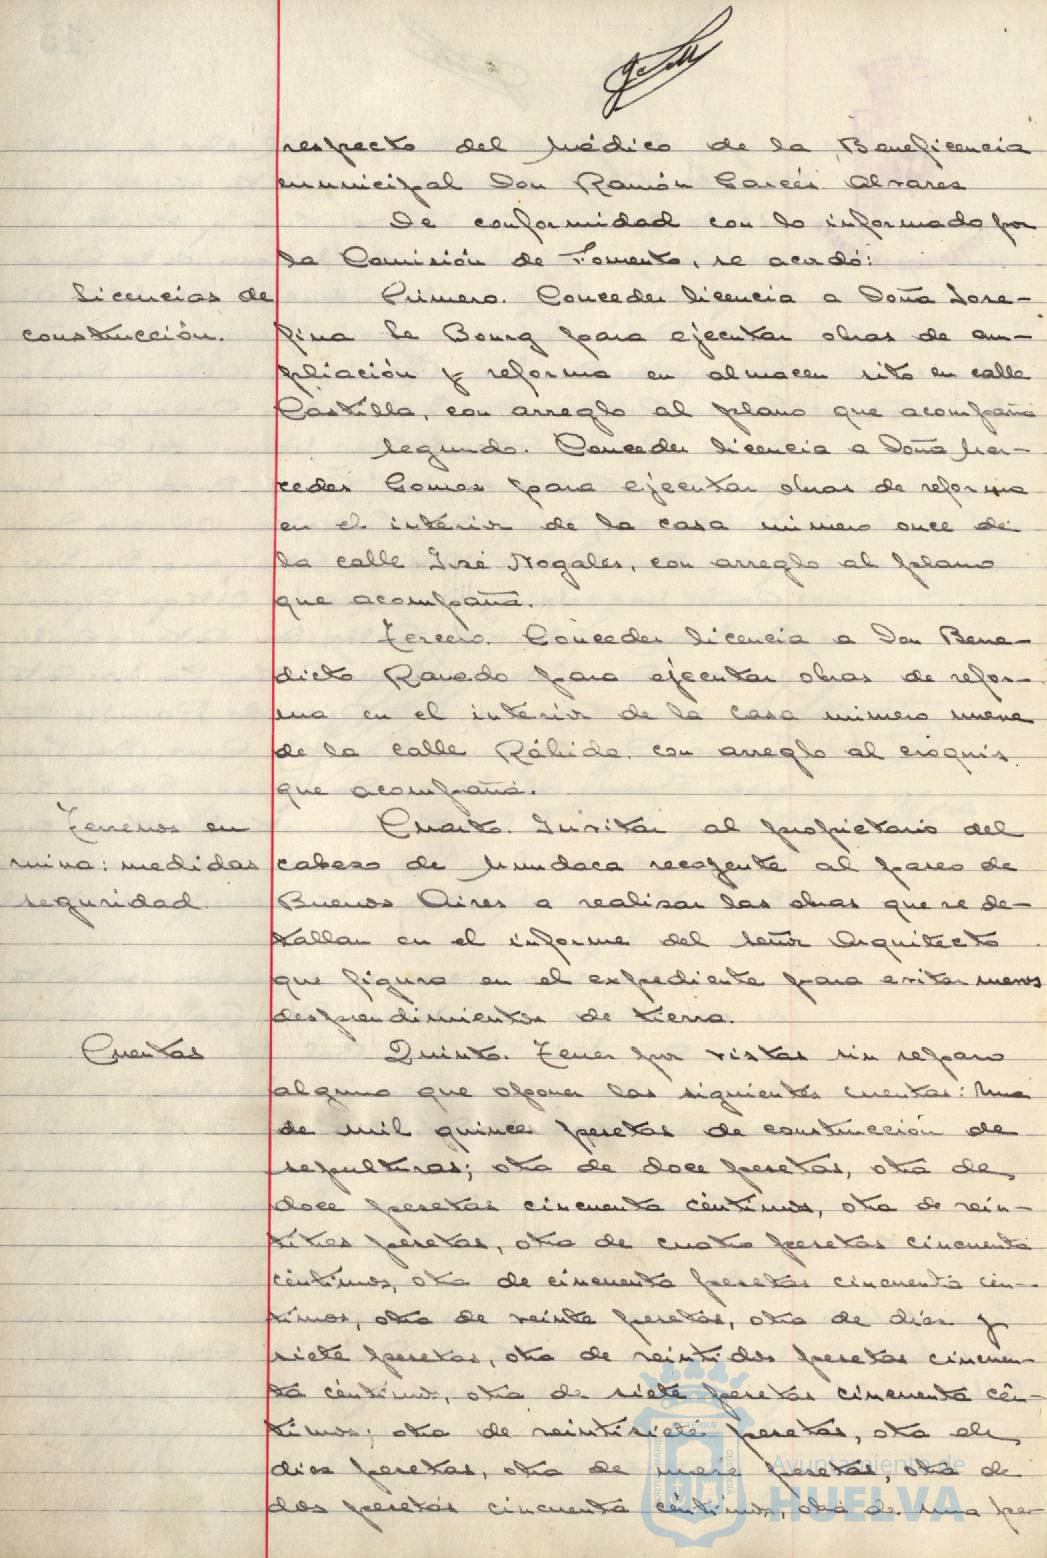 respecto del médico de la Beneficencia
municipal Don Ramón Garcés Alvares
De conformidad con lo informado por
la Comisión de Fomento, se acordó:
Licencias de
construcción.
Primero. Conceder licencia a Doña Jose-
fina Le Bourg para ejecutar obras de am-
pliación y reforma en almacen sito en calle
Castilla, con arreglo al plano que acompaña
Segundo. Conceder licencia a Doña Mer-
cedes Gomes para ejecutar obras de reforma
en el interior de la casa número once de
la calle José Nogales, con arreglo al plano
que acompaña.
Tercero. Conceder licencia a Don Bene-
dicto Ravedo para ejecutar obras de refor-
ma en el interior de la casa número nueve
de la calle Rábida, con arreglo al croquis
que acompaña.
Terrenos en
ruina: medidas
seguridad
Cuarto. Invitar al propietario del
cabezo de Mundaca recayente al paseo de
Buenos Aires a realizar las obras que se de-
tallan en el informe del Señor Arquitecto
que figura en el expediente para evitar nuevos
desprendimientos de tierra.
Cuentas
Quinto. Tener por vistas sin reparo
alguno que oponer las siguientes cuentas: Una
de mil quince pesetas de construcción de
sepulturas; otra de doce pesetas, otra de
doce pesetas cincuenta céntimos, otra de vein-
titres pesetas, otra de cuatro pesetas cincuenta
céntimos, otra de cincuenta pesetas cincuenta cén-
timos, otra de veinte pesetas, otra de dies y
siete pesetas, otra de veintidos pesetas cincuen-
ta céntimos, otra de siete pesetas cincuenta cén-
timos; otra de veintisiete pesetas, otra de
dies pesetas, otra de nueve pesetas, otra de
dos pesetas cincuenta céntimos, otra de una pe-
Ayuntamiento de
HUELVA